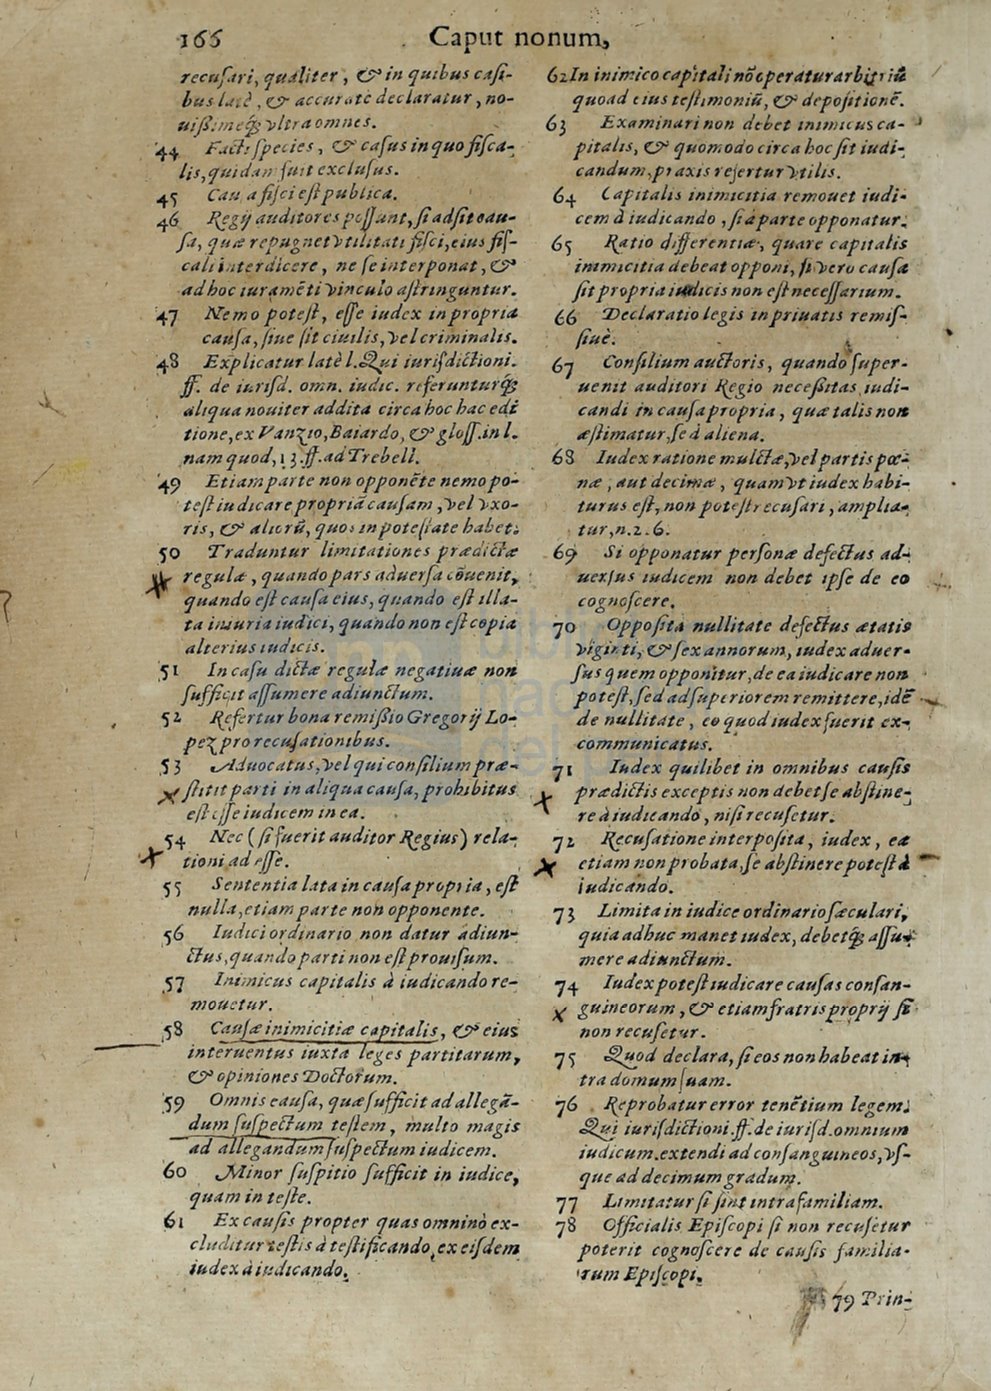 166 Caput nonum,
recusari, qualiter, & in quibus casi-
bus latè, & accuratè declaratur, no-
uißimeq́; vltra omnes.
44 Facti species, & casus in quo fisca-
lis, quidam fuit exclusus.
45 Causa fisci est publica.
46 Regij auditores possunt, si adsit cau-
sa, quæ repugnet vtilitati fisci, eius fis-
cali interdicere, ne se interponat, &
ad hoc iuramẽti vinculo astringuntur.
47 Nemo potest, esse iudex in propria
causa, siue sit ciuilis, vel criminalis.
48 Explicatur latè l. Qui iurisdictioni.
ff. de iurisd. omn. iudic. referunturq́;
aliqua nouiter addita circa hoc hac edi
tione, ex Vanzio, Baiardo, & gloss. in l.
nam quod, 13. ff. ad Trebell.
49 Etiam parte non opponẽte nemo po-
test iudicare propriã causam, vel vxo-
ris, & aliorũ, quos in potestate habet.
50 Traduntur limitationes prædictæ
regulæ, quando pars aduersa cõuenit,
quando est causa eius, quando est illa-
ta iniuria iudici, quando non est copia
alterius iudicis.
51 In casu dictæ regulæ negatiuæ non
sufficit assumere adiunctum.
52 Refertur bona remißio Gregorij Lo-
pez pro recusationibus.
53 Aduocatus, vel qui consilium præ-
stitit parti in aliqua causa, prohibitus
est esse iudicem in ea.
54 Nec (si fuerit auditor Regius) rela-
tioni adesse.
55 Sententia lata in causa propria, est
nulla, etiam parte non opponente.
56 Iudici ordinario non datur adiun-
ctus, quando parti non est prouisum.
57 Inimicus capitalis à iudicando re-
mouetur.
58 Causæ inimicitiæ capitalis, & eius
interuentus iuxta leges partitarum,
& opiniones Doctorum.
59 Omnis causa, quæ sufficit ad allegã-
dum suspectum testem, multo magis
ad allegandum suspectum iudicem.
60 Minor suspitio sufficit in iudice,
quam in teste.
61 Ex causis propter quas omninò ex-
cluditur testis à testificando, ex eisdem
iudex à iudicando.
62 In inimico capitali nõ operatur arbitriũ
quoad eius testimoniũ, & depositionẽ.
63 Examinari non debet inimicus ca-
pitalis, & quomodo circa hoc sit iudi-
candum, praxis refertur vtilis.
64 Capitalis inimicitia remouet iudi-
cem à iudicando, si à parte opponatur.
65 Ratio differentiæ, quare capitalis
inimicitia debeat opponi, si vero causa
sit propria iudicis non est necessarium.
66 Declaratio legis in priuatis remis-
siuè.
67 Consilium auctoris, quando super-
uenit auditori Regio neceßitas iudi-
candi in causa propria, quæ talis non
æstimatur, sed aliena.
68 Iudex ratione mulctæ, vel partis pœ-
næ, aut decimæ, quam vt iudex habi-
turus est, non potest recusari, amplia-
tur, n. 2. 6.
69 Si opponatur personæ defectus ad-
uersus iudicem non debet ipse de eo
cognoscere.
70 Opposita nullitate defectus ætatis
viginti, & sex annorum, iudex aduer-
sus quem opponitur, de ea iudicare non
potest, sed ad superiorem remittere, idẽ
de nullitate, eo quod iudex fuerit ex-
communicatus.
71 Iudex quilibet in omnibus causis
prædictis exceptis non debet se abstine-
re à iudicando, nisi recusetur.
72 Recusatione interposita, iudex, ea
etiam non probata, se abstinere potest à
iudicando.
73 Limita in iudice ordinario sæculari,
quia adhuc manet iudex, debetq́; assu-
mere adiunctum.
74 Iudex potest iudicare causas consan-
guineorum, & etiam fratris proprij si
non recusetur.
75 Quod declara, si eos non habeat in-
tra domum suam.
76 Reprobatur error tenẽtium legem.
Qui iurisdictioni. ff. de iurisd. omnium
iudicum. extendi ad consanguineos, vs-
que ad decimum gradum.
77 Limitatur si sint intra familiam.
78 Officialis Episcopi si non recusetur
poterit cognoscere de causis familia-
rum Episcopi.
79 Prin-